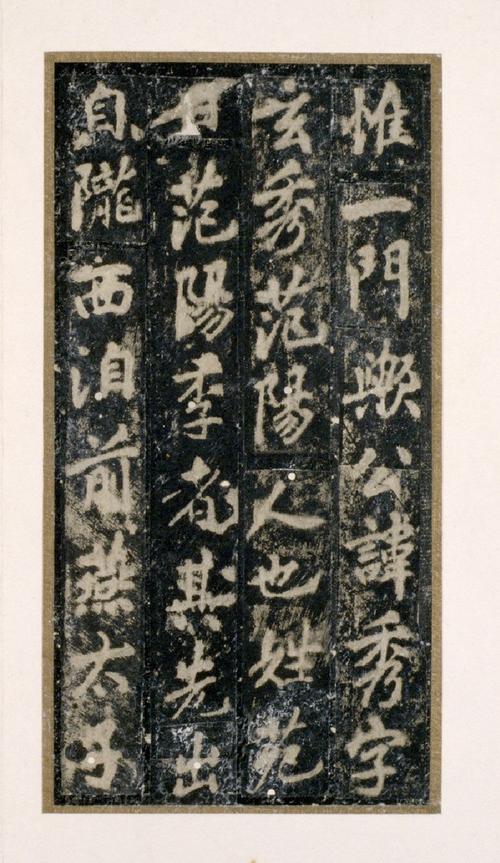 惟一門歟公諱秀字
玄秀范陽人也姓苑
有范陽李者其先出
自隴西洎前燕太子